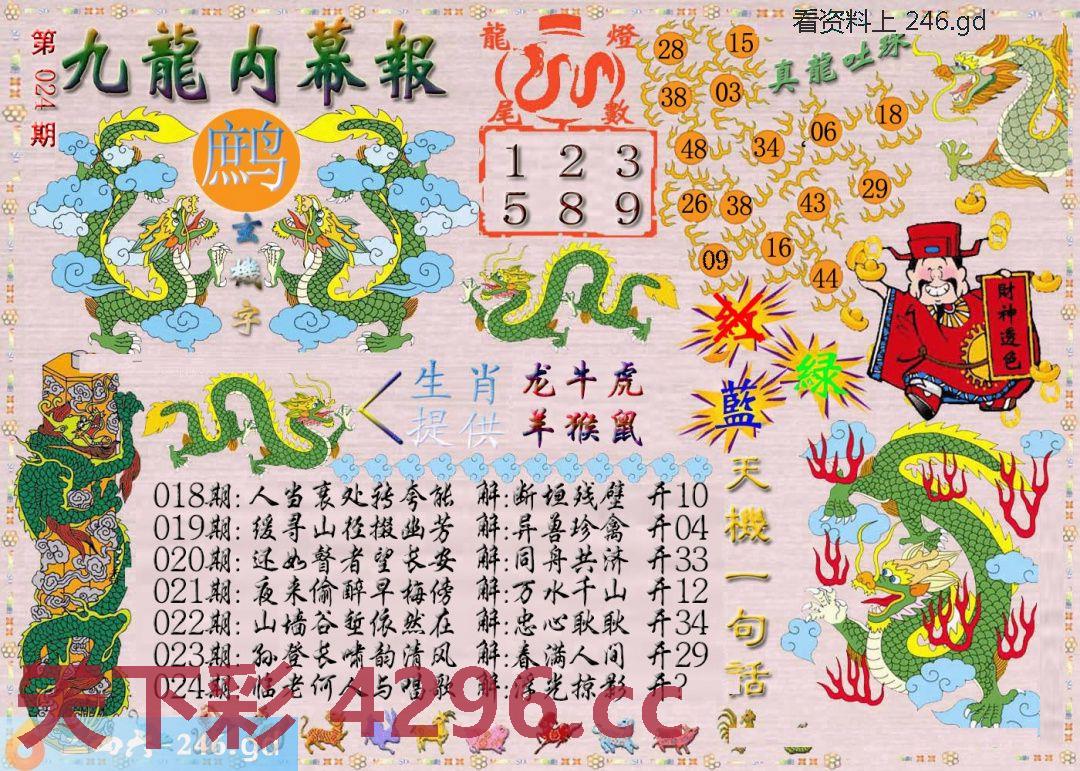 看资料上 246.gd
第024期
九龍内幕報
鹧
玄機字
龍燈
尾數
1 2 3
5 8 9
真龍吐珠
28
15
38
03
48
34
06
18
26
38
43
29
09
16
44
財神透色
红
綠
藍
生肖
提供
龙牛虎
羊猴鼠
天機一句話
018期: 人当衰处转夸能 解:断垣残壁 开10
019期: 缓寻山径掇幽芳 解:异兽珍禽 开04
020期: 还如瞽者望长安 解:同舟共济 开33
021期: 夜来偷醉早梅傍 解:万水千山 开12
022期: 山墙谷堑依然在 解:忠心耿耿 开34
023期: 孙登长啸韵清风 解:春满人间 开29
024期: 临老何人与唱歌 解:浮光掠影 开?
天下彩 4296.cc
246.gd